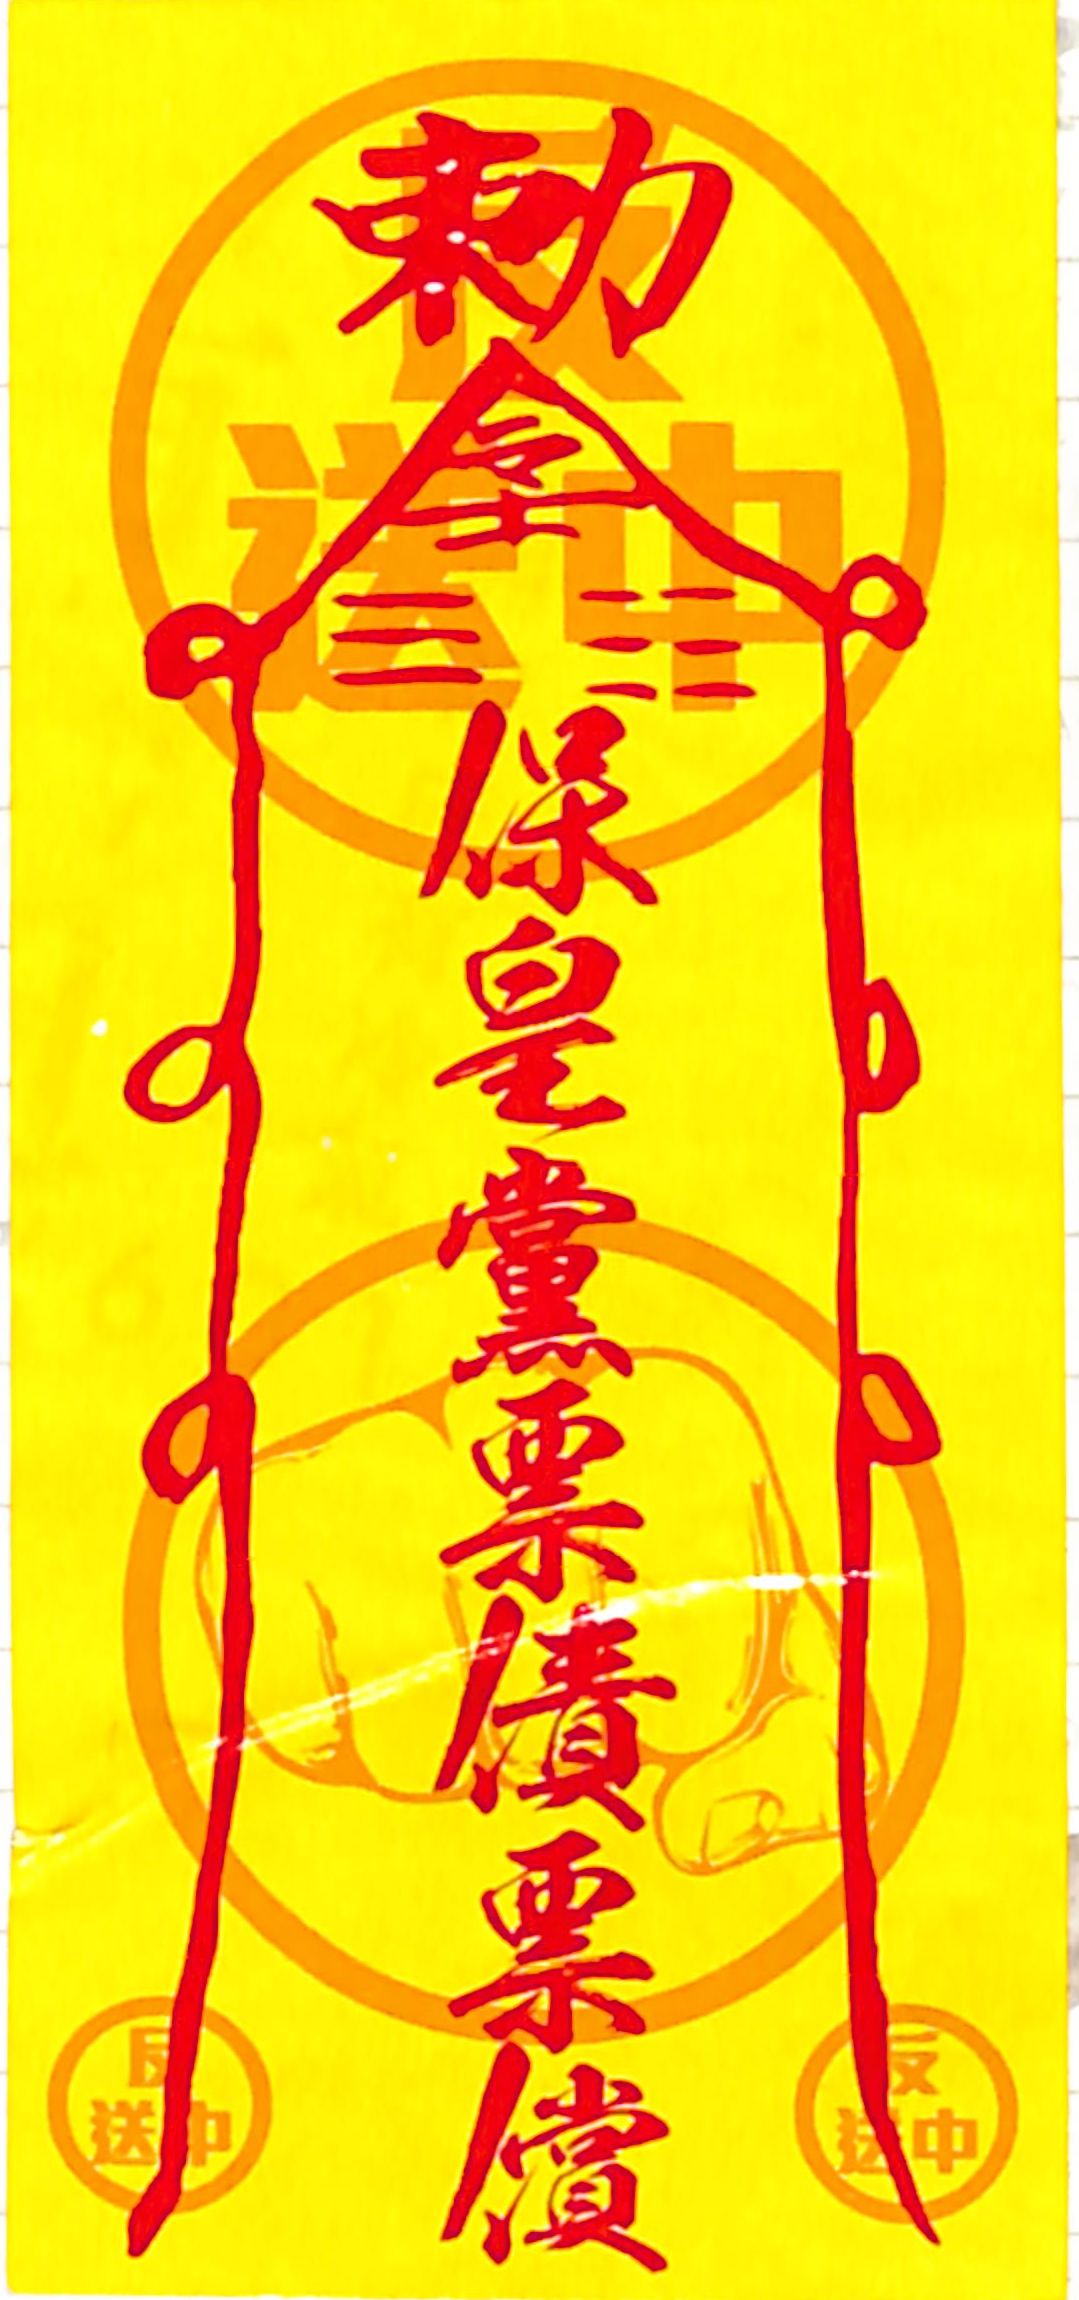 勅
令
保皇黨票債票償
反
送中
反
送中
反
送中